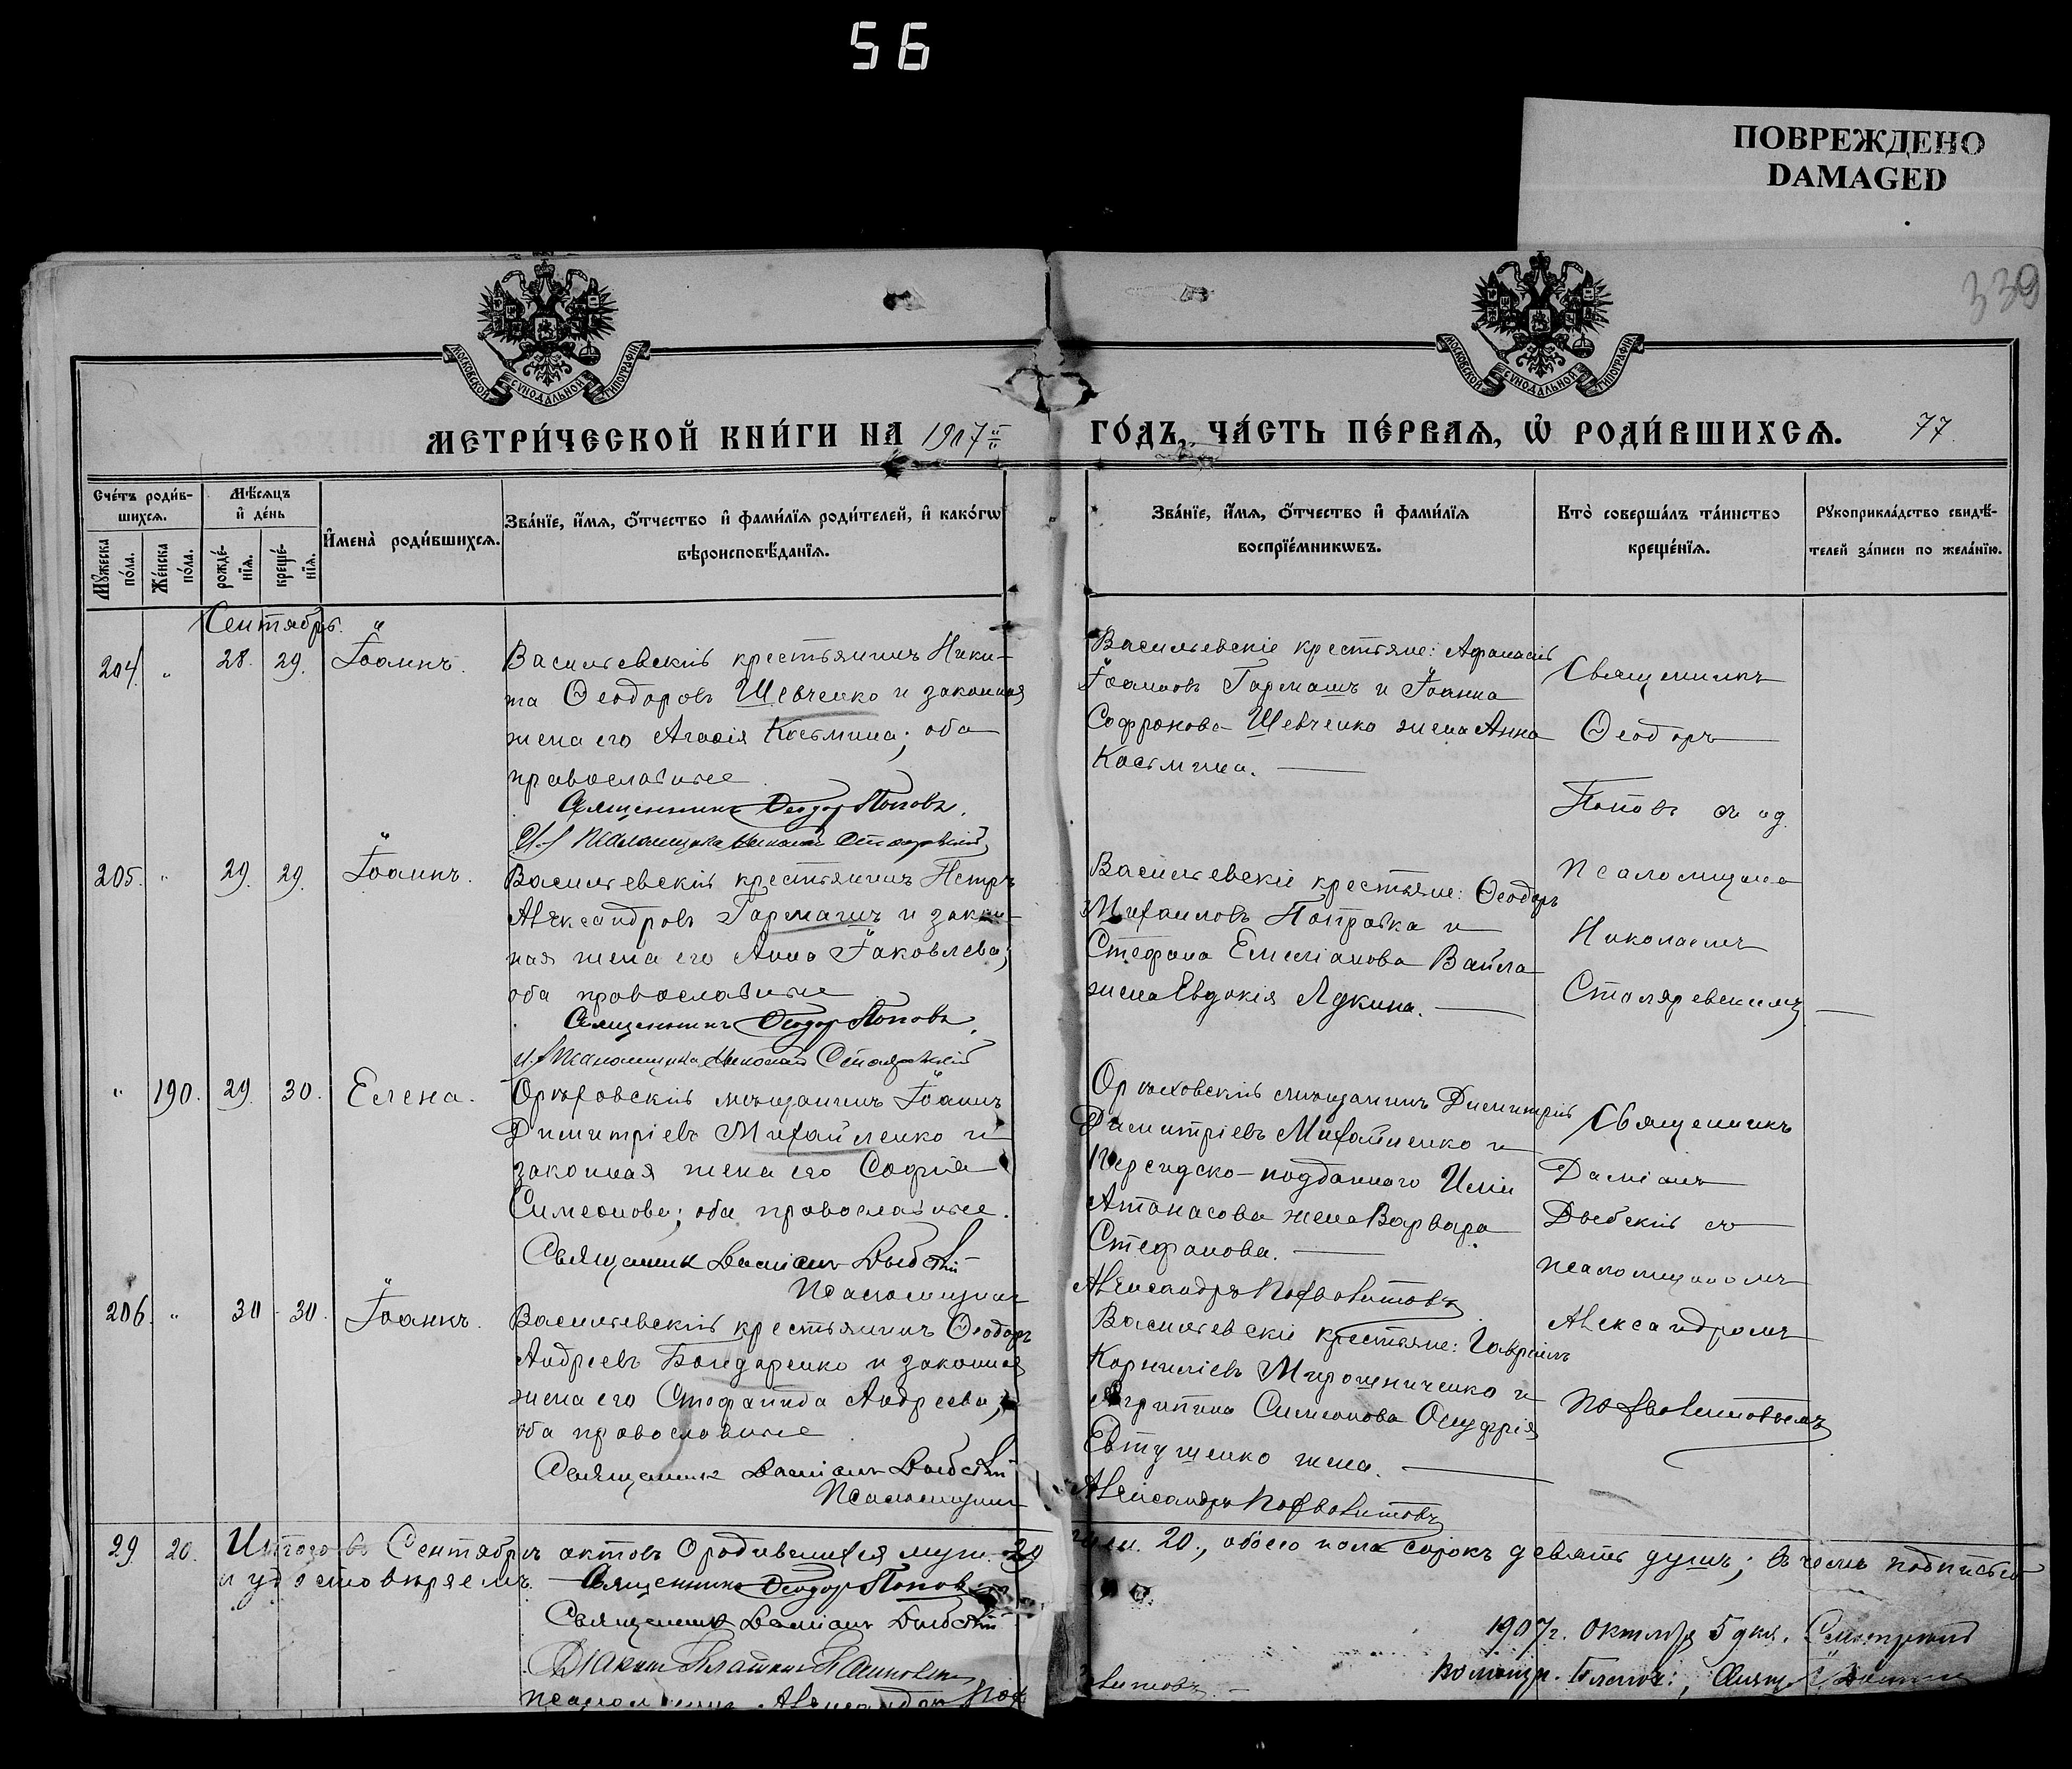 56
ПОВРЕЖДЕНО
DAMAGED
339
МОСКОВСКОЙ СѴНОДАЛЬНОЙ ТИПОГРАФІИ
МОСКОВСКОЙ СѴНОДАЛЬНОЙ ТИПОГРАФІИ
МЕТРИ́ЧЕСКОЙ КНИ́ГИ НА 1907й ГО́ДЪ, ЧА́СТЬ ПЕ́РВАѦ, Ѡ РОДИ́ВШИХСѦ. 77
Сче́тъ роди́в-
шихсѧ.
Мꙋ́жеска по́ла.
Же́нска по́ла.
Мѣ́сѧцъ
и де́нь
рожде́-
нїѧ.
креще́-
нїѧ.
И҆мена̀ роди́вшихсѧ.
Зва́нїе, и҆́мѧ, ѻ҆́тчество и҆ фами́лїѧ роди́телей, и҆ како́гѡ
вѣроисповѣ́данїѧ.
Зва́нїе, и҆́мѧ, ѻ҆́тчество и҆ фами́лїѧ
воспрїе́мникѡвъ.
Кто̀ соверша́лъ та́инство
креще́нїѧ.
Рꙋкоприкла́дство свидѣ́-
телей за́писи по жела́нїю.
Сентябрь.
204. " 28. 29. Іоаннъ.
Васильевскій крестьянинъ Ники-
та Ѳеодоровъ Шевченко и законная
жена его Агафія Косьмина; оба
православные
Священникъ Ѳеодоръ Поповъ.
И. д. Псаломщика Николай Столяревскій
Васильевскіе крестьяне: Афанасій
Іоанновъ Гармашъ и Іоанна
Софронова Шевченко жена Анна
Косьмина.
Священникъ
Ѳеодоръ
Поповъ съ и. д.
Псаломщика
Николаемъ
Столяревскимъ
205. " 29. 29. Іоаннъ.
Васильевскій крестьянинъ Петръ
Александровъ Гармашъ и закон-
ная жена его Анна Іаковлева;
оба православные
Священникъ Ѳеодоръ Поповъ.
И. д. Псаломщика Николай Столяревскій
Васильевскіе крестьяне: Ѳеодоръ
Михаиловъ Поправка и
Стефана Емеліанова Вайла
жена Евдокія Лукина.
" 190. 29. 30. Елена.
Орѣховскій мѣщанинъ Іоаннъ
Димитріевъ Михайленко и
законная жена его Софія
Симеонова; оба православные.
Священникъ Даміанъ Дыбскій
Псаломщикъ
Орѣховскій мѣщанинъ Димитрій
Димитріевъ Михайленко и
Персидско-подданнаго Иліи
Атанасова жена Варвара
Стефанова.
Александръ
Священникъ
Даміанъ
Дыбскій съ
псаломщикомъ
Александромъ
206. " 30 30. Іоаннъ.
Васильевскій крестьянинъ Ѳеодоръ
Андреевъ Бондаренко и законная
жена его Стефанида Андреева;
оба православные
Священникъ Даміанъ Дыбскій
Псаломщикъ
Васильевскіе крестьяне: Гавріилъ
Корниліевъ Мирошниченко и
Агрипина Симеонова Онуфрія
Евтушенко жена.
Александръ
29 20. Итого въ Сентябрѣ актовъ о родившихся муж. 29 жен. 20., обоего пола сорокъ девять душъ; въ чемъ подписью
и удостовѣряемъ. Священникъ Ѳеодоръ Поповъ
Священникъ Даміанъ Дыбскій
Псаломщикъ Александръ
1907 г. Октября 5 дня. Смотрѣлъ
Помощн. Благоч.: Свящ.